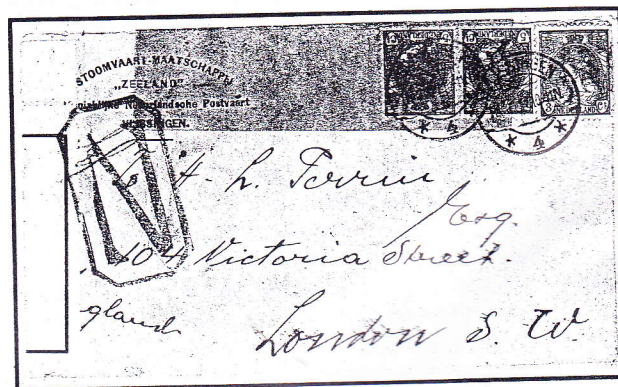 STOOMVAART-MAATSCHAPPIJ
„ZEELAND”
Nederlandsche Postvaart
VLISSINGEN.
* 4 *
* 4 *
N
H. L. Perrin
Esq.
104 Victoria Street.
London S. W.
gland